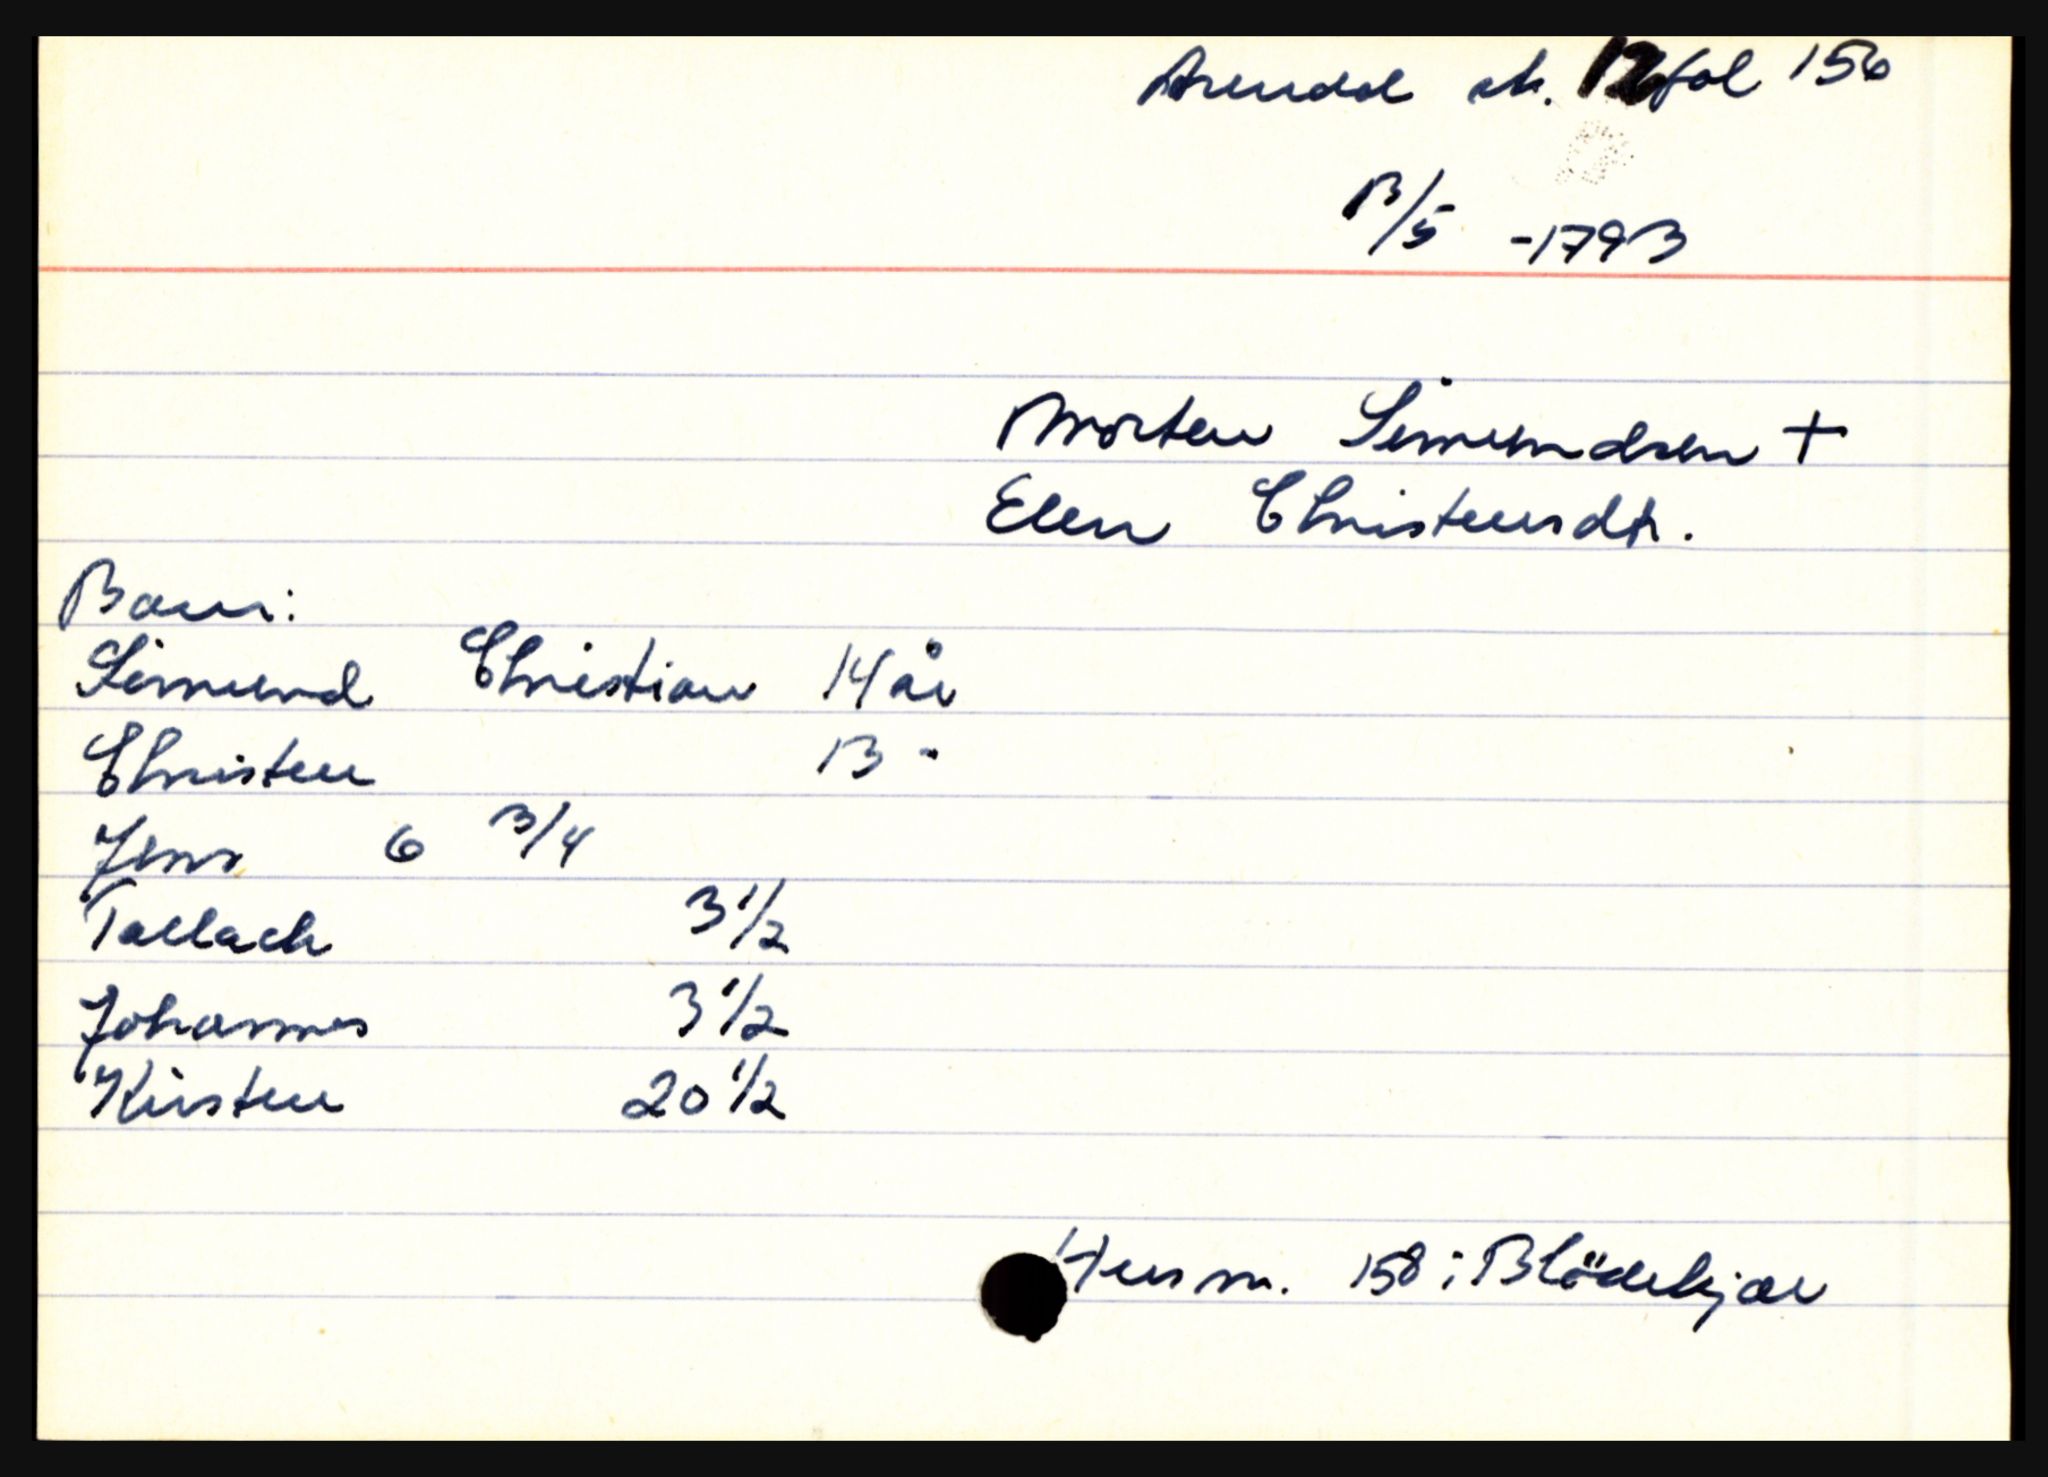 Arendal sk. 12 fol 156
13/5 -1793
Morten Simundsen +
Elen Christensdtr.
Barn:
Simund Christian 14 år
Christen 13 -
Jens 6 3/4
Tallach 3 1/2
Johannes 3 1/2
Kirsten 20 1/2
Hus nr. 158 i Blödekjær